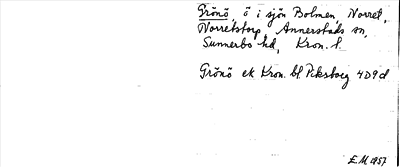 Grönö, ö i sjön Bolmen, Norret,
Norretstorp, Annerstads sn,
Sunnerbo hd, Kron. l.
Grönö ek Kron. bl. Piksborg 4D9d
E.M 1957